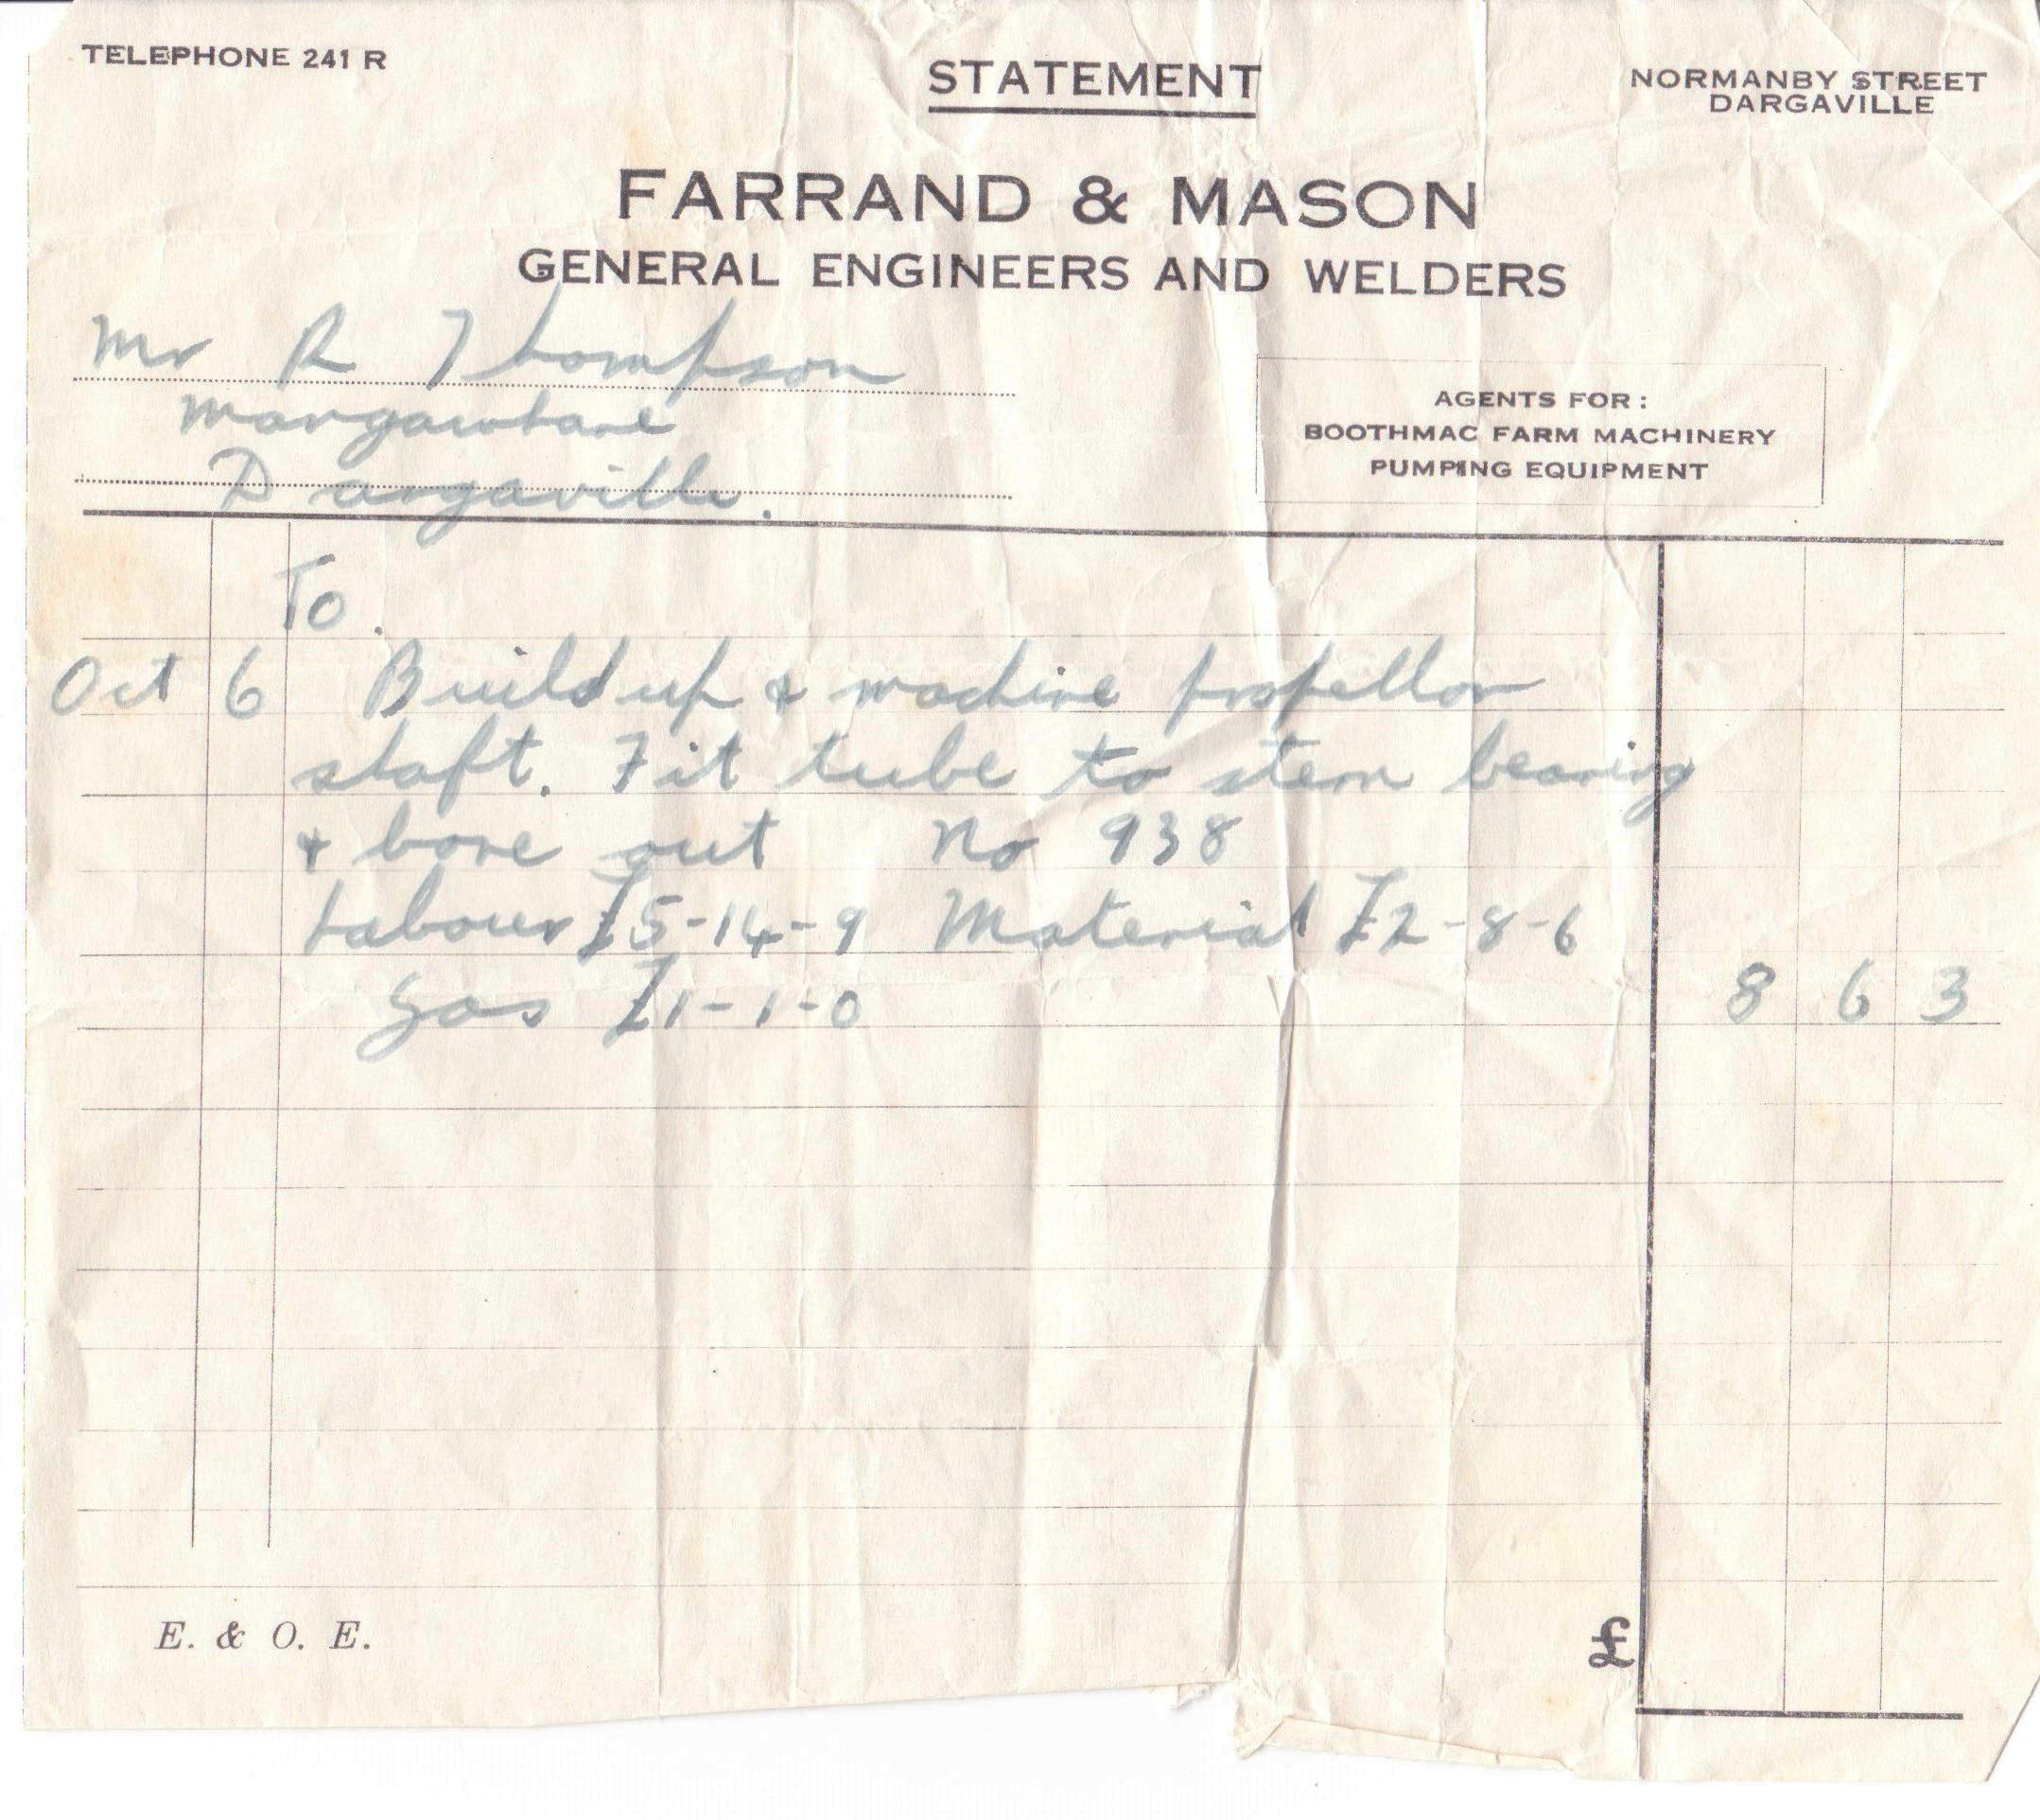 TELEPHONE 241 R
STATEMENT
NORMANBY STREET
DARGAVILLE
FARRAND & MASON
GENERAL ENGINEERS AND WELDERS
Mr R Thompson
Mangawhare
Dargaville.
AGENTS FOR:
BOOTHMAC FARM MACHINERY
PUMPING EQUIPMENT
To.
Oct 6 Build up & machine propellor
shaft. Fit tube to stern bearing
& bore out No 938
Labour £5-14-9 Material £2-8-6
Gas £1-1-0 8 6 3
E. & O. E. £